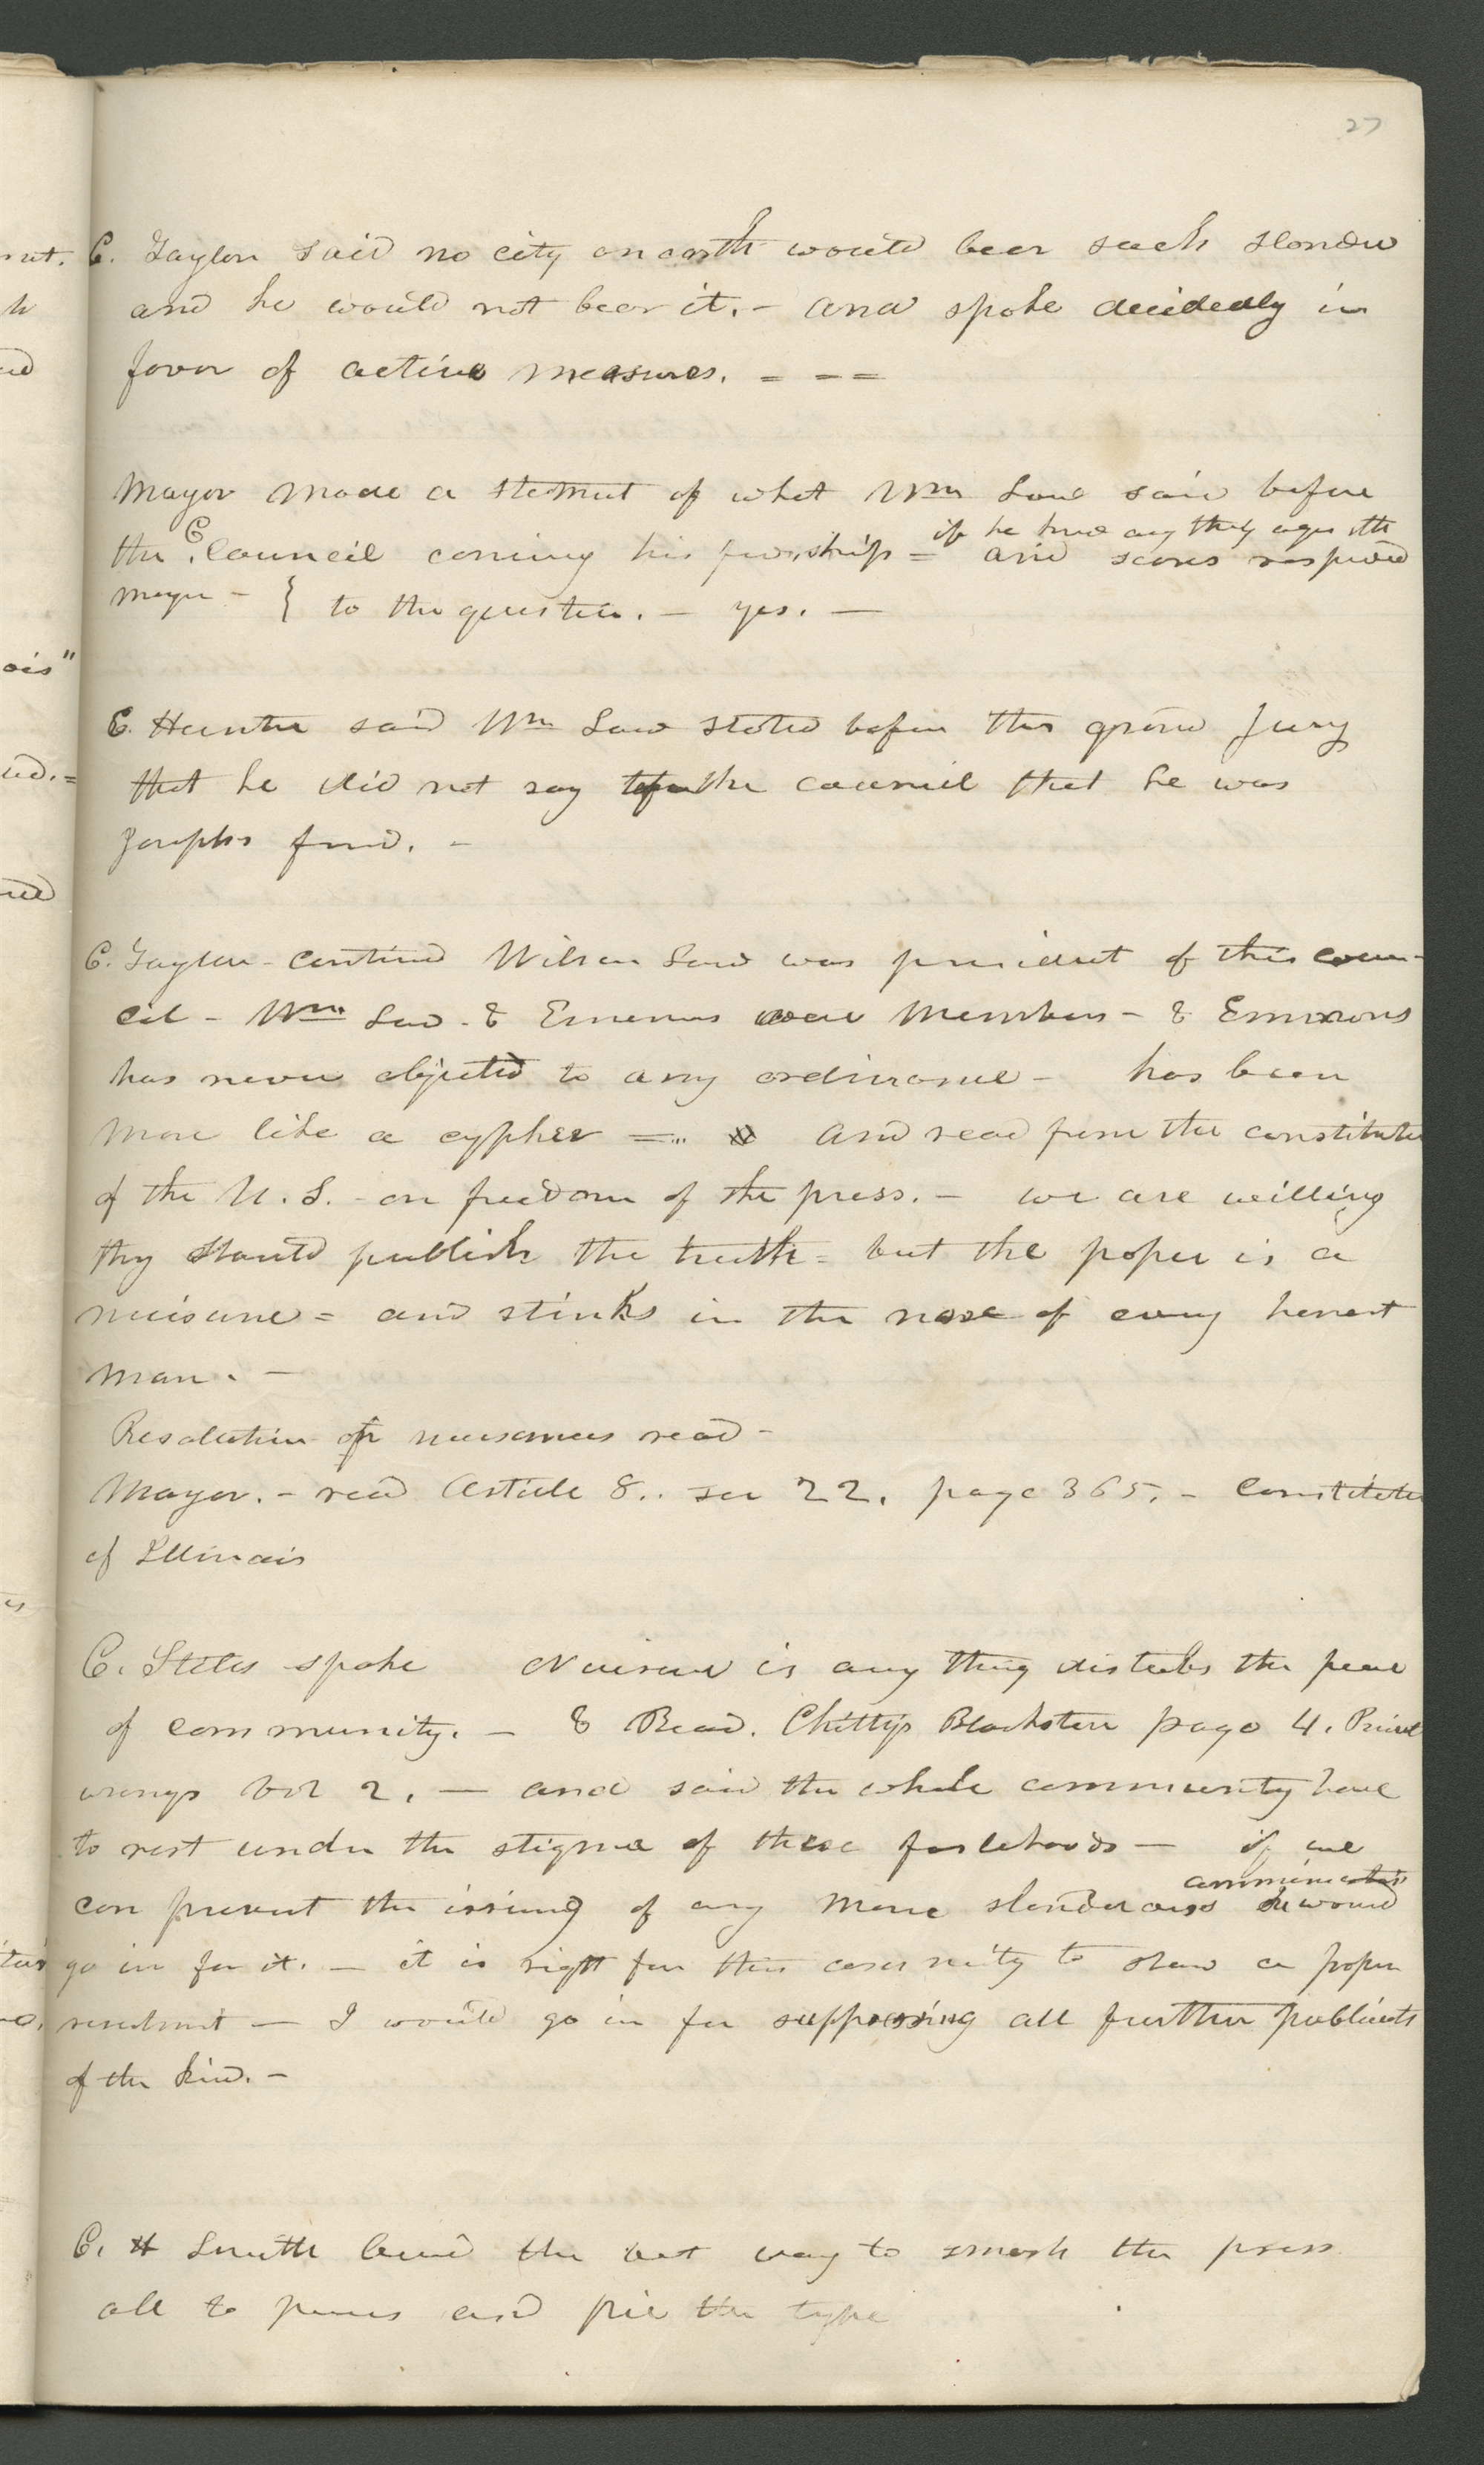 27
C. Taylor said no city on earth would bear such slander
and he would not bear it. - and spoke decidedly in
favor of active measures. = - =
Mayor made a statmnt of what Wm Law said before
the C. Council coming his frindship = and scores respond
if he knew any thing agnst the
mayor - { to the question. - yes. -
E. Hunter said Wm Law stated before the grand Jury
that he did not say to the council that he was
Josephs frind. -
C. Taylor - continud Wilson Law was president of this coun-
cil - Wm Law - & Emmons were members - & Emmons
has never objected to any ordinance - has been
more like a cypher = and read from the constitution
of the U.S. - on freedom of the press. - we are willing
they should publish the truth = but the paper is a
nuisance = and stinks in the nose of every honest
man. -
Resolution on nuisances read -
Mayor. - read Article 8. sec 22. page 365. - Constitution
of Illinois
C. Stiles spoke Nuisance is any thing disturbs the peace
of community. - & Read. Chitty's Blackstone page 4. Private
wrongs Vol 2. - and said the whole community have
to rest under the stigma of these falsehoods - if we
can prevent the issuing of any more slanderous he would
communications
go in for it. - it is right for this community to show a proper
resentment - I would go in for suppressing all further publications
of the kind. -
C. H Smith beleived the best way to smash the press
all to pieces and pie the type
nt.
h
ois"
ed. =